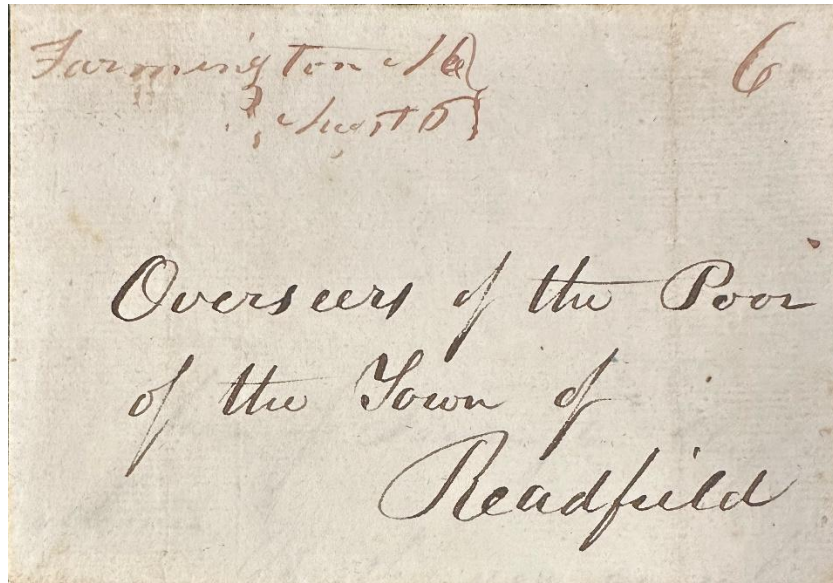 Farmington Me 6
Augst 5
Overseers of the Poor
of the Town of
Readfield